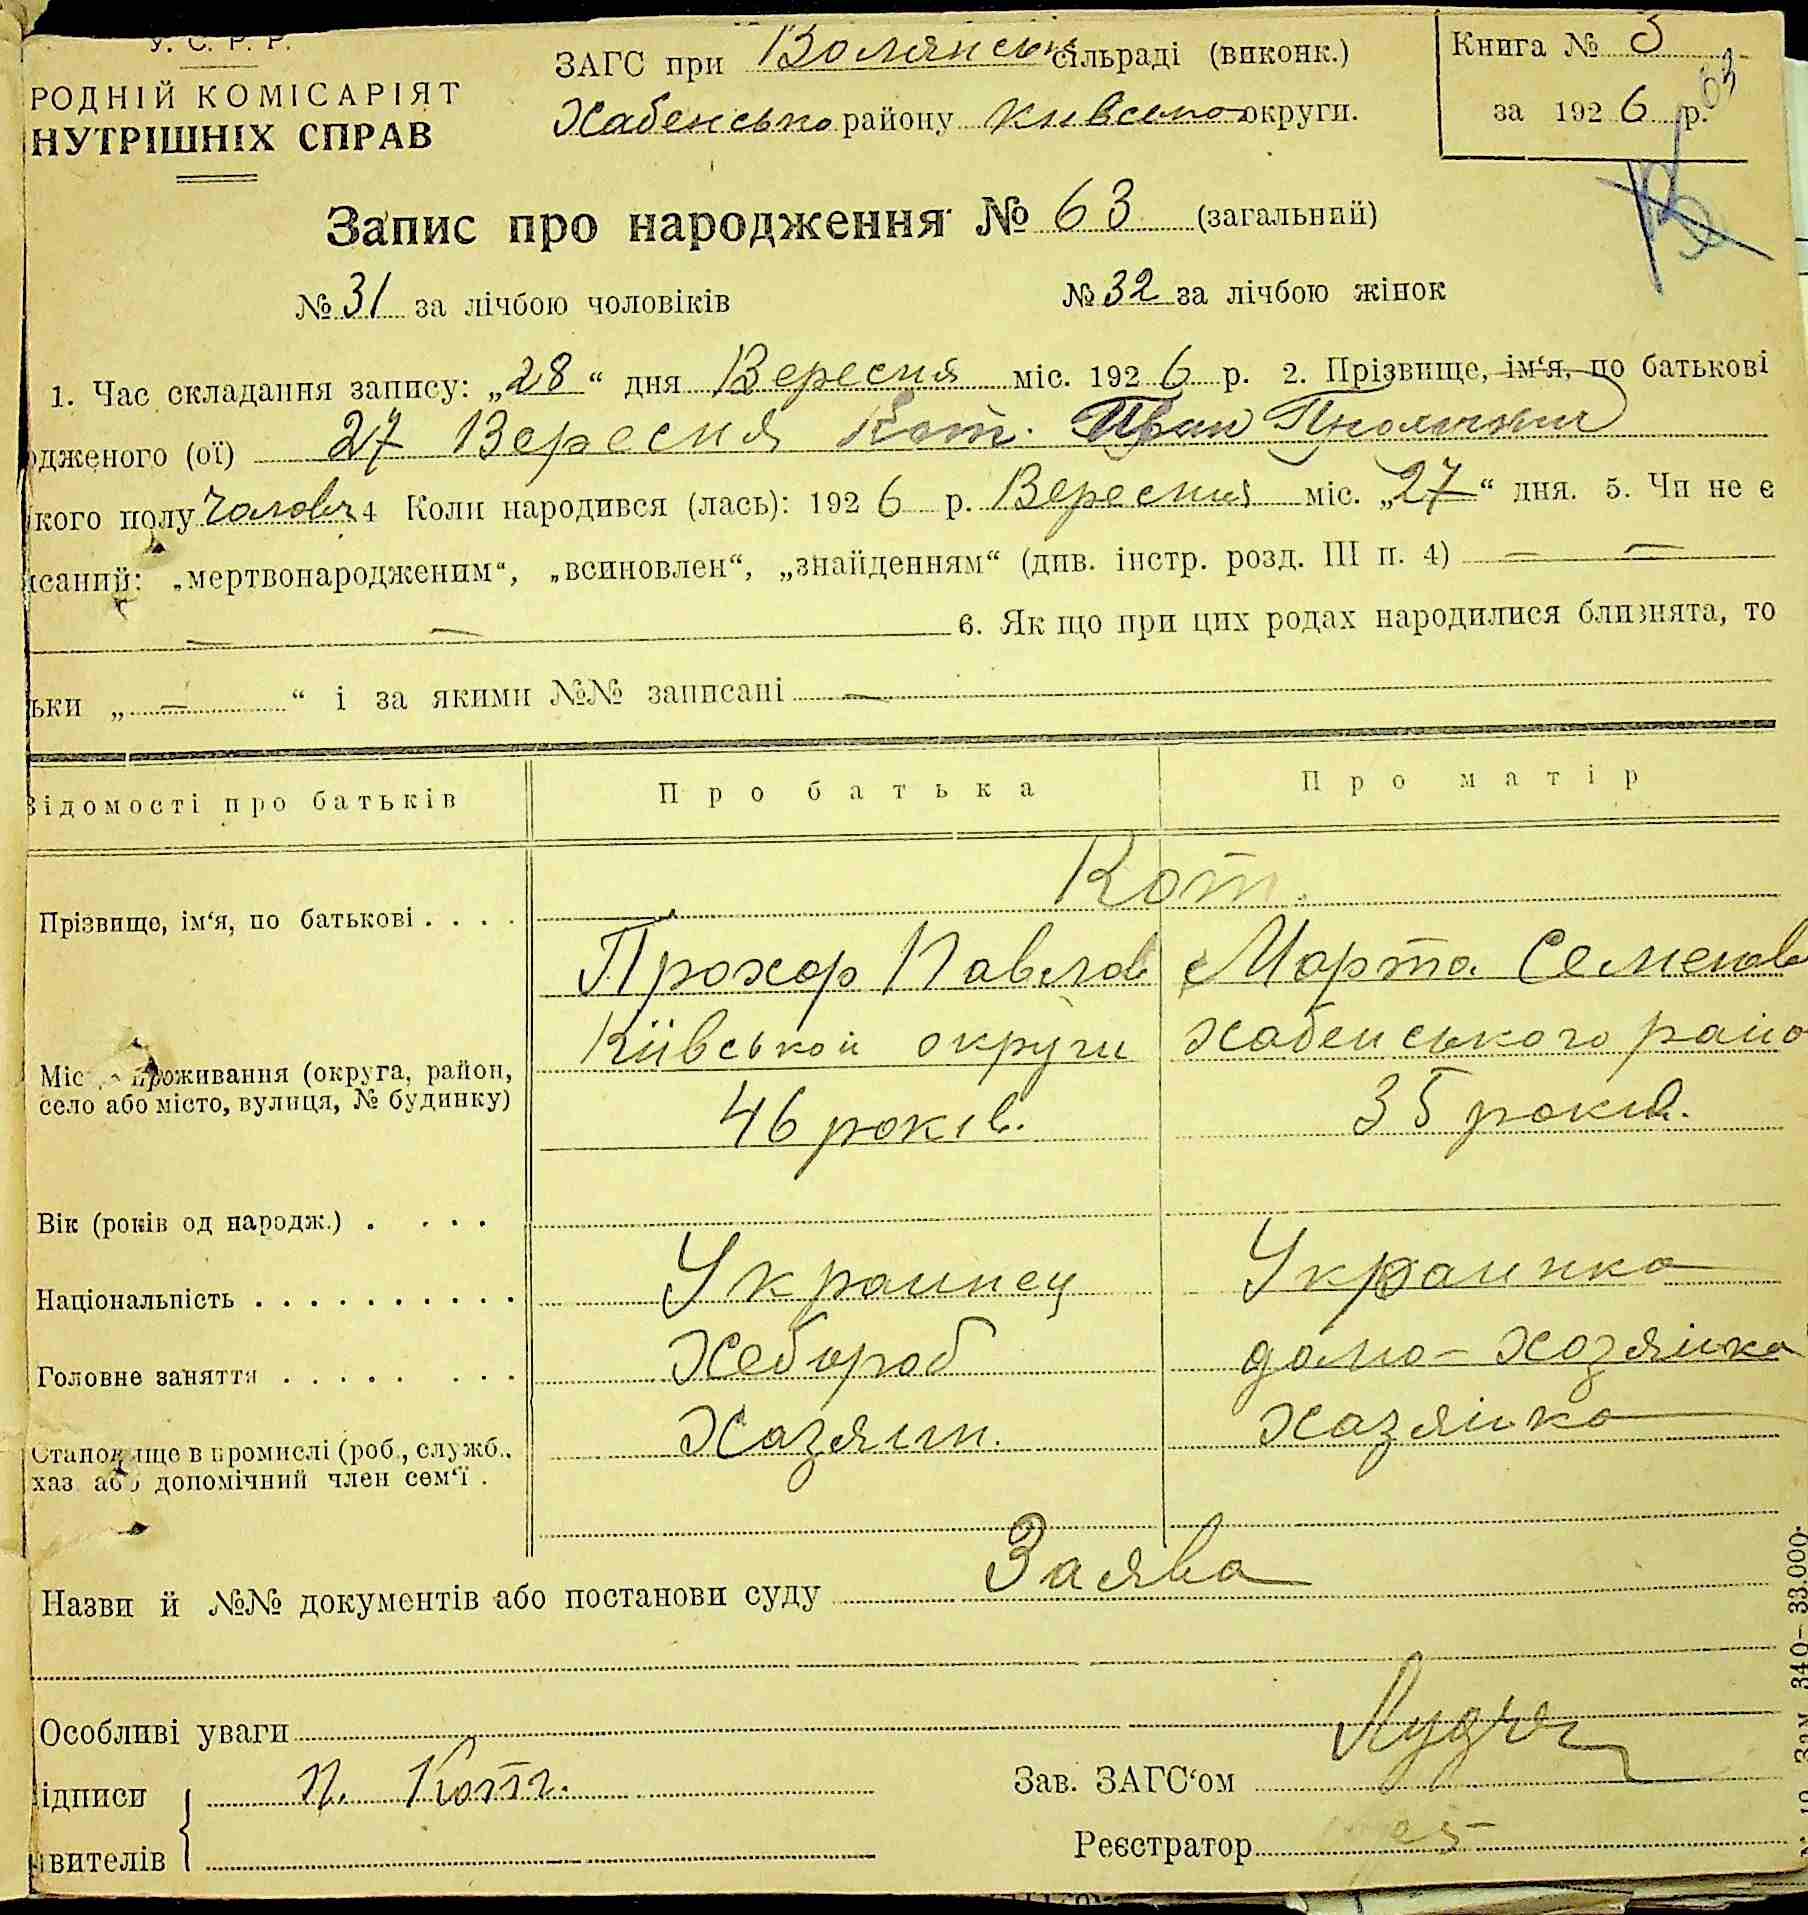 У. С. Р. Р.
РОДНІЙ КОМІСАРІЯТ
НУТРІШНІХ СПРАВ
ЗАГС при сільраді (виконк.)
Хабенсько району Київської округи.
Книга № 3
за 1926 р.
63
Запис про народження № 63 (загальний)
№ 31 за лічбою чоловіків № 32 за лічбою жінок
1. Час складання запису: „28“ дня Вересня міс. 1926 р. 2. Прізвище, ім‘я, по батькові
одженого (ої) 27 Вересня Кот.
кого полу Чолов. 4 Коли народився (лась): 1926 р. Вересня міс. „27“ дня. 5. Чи не є
исаний: „мертвонародженим“, „всиновлен“, „знайденням“ (див. інстр. розд. III п. 4) — —
— — 6. Як що при цих родах народилися близнята, то
ьки „ — “ і за якими №№ записані —
Відомості про батьків Про батька Про матір
Кот.
Прізвище, ім‘я, по батькові . . . .
Прохор Павлов Марта Семенов
Київськои округи Хабенського райо
Міс проживання (округа, район,
село або місто, вулиця, № будинку)
46 років. 35 років.
Вік (років од народж.) . . . .
Національність . . . . . . . . . . Украинец Украинка
Головне заняття . . . . . . . . Хебороб домо-хозяйка
Становище в промислі (роб., служб., Хазяин. Хазяйка
хаз або допомічний член сем‘ї .
Назви й №№ документів або постанови суду Заява
Особливі уваги
ідписи П. Кот.
явителів
Зав. ЗАГС‘ом
Реєстратор
Зам. 340—33.000.